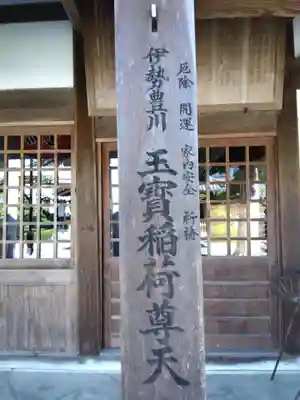 厄除 開運 家内安全 祈祷
伊勢豊川 玉寳稲荷尊天